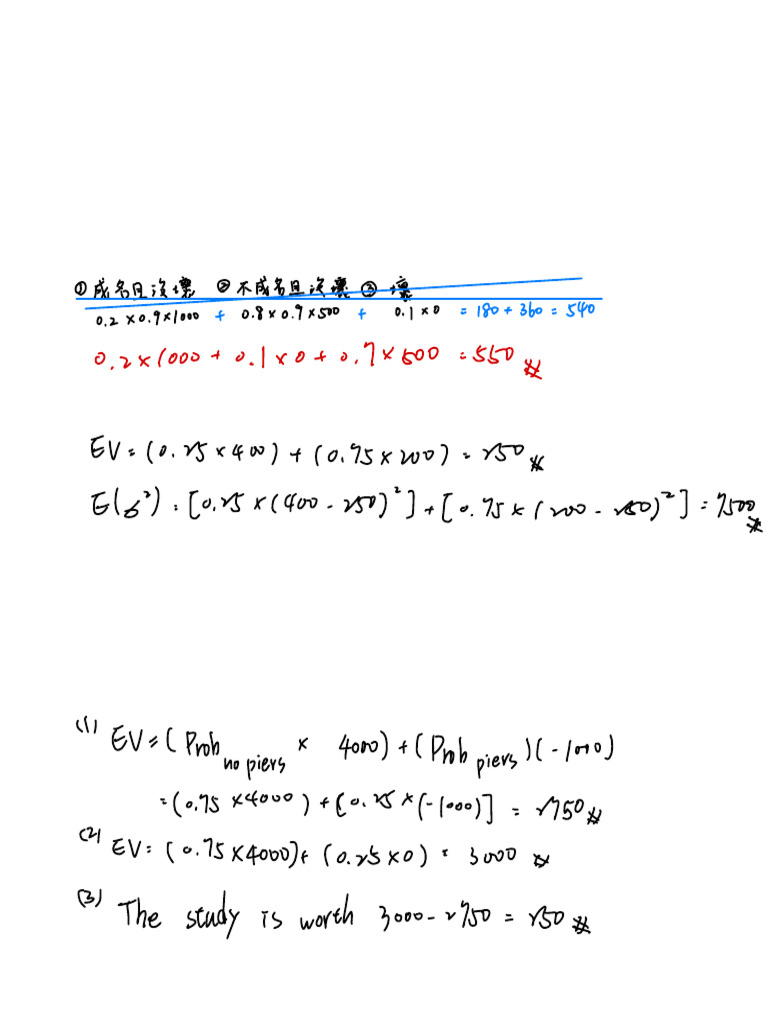 ①成名且沒壞 ②不成名且沒壞 ③壞
0.2×0.9×1000 + 0.8×0.9×500 + 0.1×0 = 180+360=540
0.2×1000+0.1×0+0.7×500=550 #
EV=(0.25×400)+(0.75×200)=250 #
E(σ²)=[0.25×(400-250)²]+[0.75×(200-250)²]=7500 #
(1) EV=(Prob no piers × 4000)+(Prob piers)(-1000)
=(0.75×4000)+[0.25×(-1000)] = 2750 #
(2) EV=(0.75×4000)+(0.25×0)=3000 #
(3) The study is worth 3000-2750=250 #